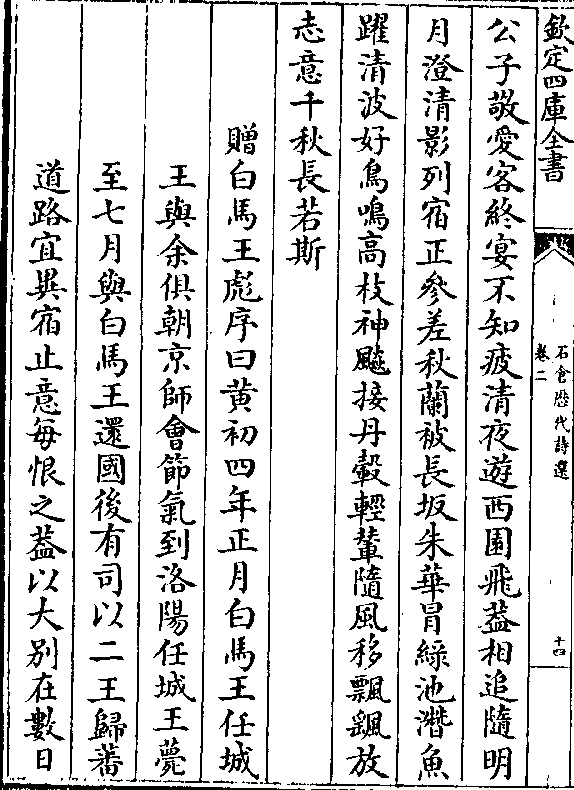 欽定四庫全書
石倉歷代詩選
卷二
十四
公子敬愛客終宴不知疲清夜遊西園飛葢相追隨明
月澄清影列宿正參差秋蘭被長坂朱華冐綠池潛魚
躍清波好鳥鳴高枝神飈接丹轂輕輦隨風移飄颻放
志意千秋長若斯
贈白馬王彪序曰黄初四年正月白馬王任城
王與余俱朝京師會節氣到洛陽任城王薨
至七月與白馬王還國後有司以二王歸蕃
道路宜異宿止意毎恨之葢以大別在數日